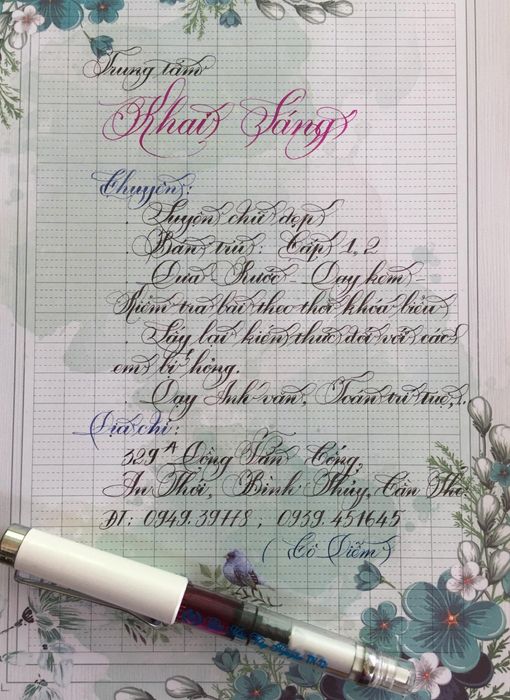 Trung tâm
Khai Sáng
Chuyên:
. Luyện chữ đẹp
. Bán trú Cấp 1, 2
. Đưa - Rước - Dạy kèm -
Kiểm tra bài theo thời khóa biểu
. Lấy lại kiến thức đối với các
em bị hỏng.
. Dạy Anh văn, Toán trí tuệ,..
Địa chỉ:
329A Đồng Văn Cống,
An Thới, Bình Thủy, Cần Thơ.
ĐT: 0949.39778, 0939.451645
( Cô Diễm)